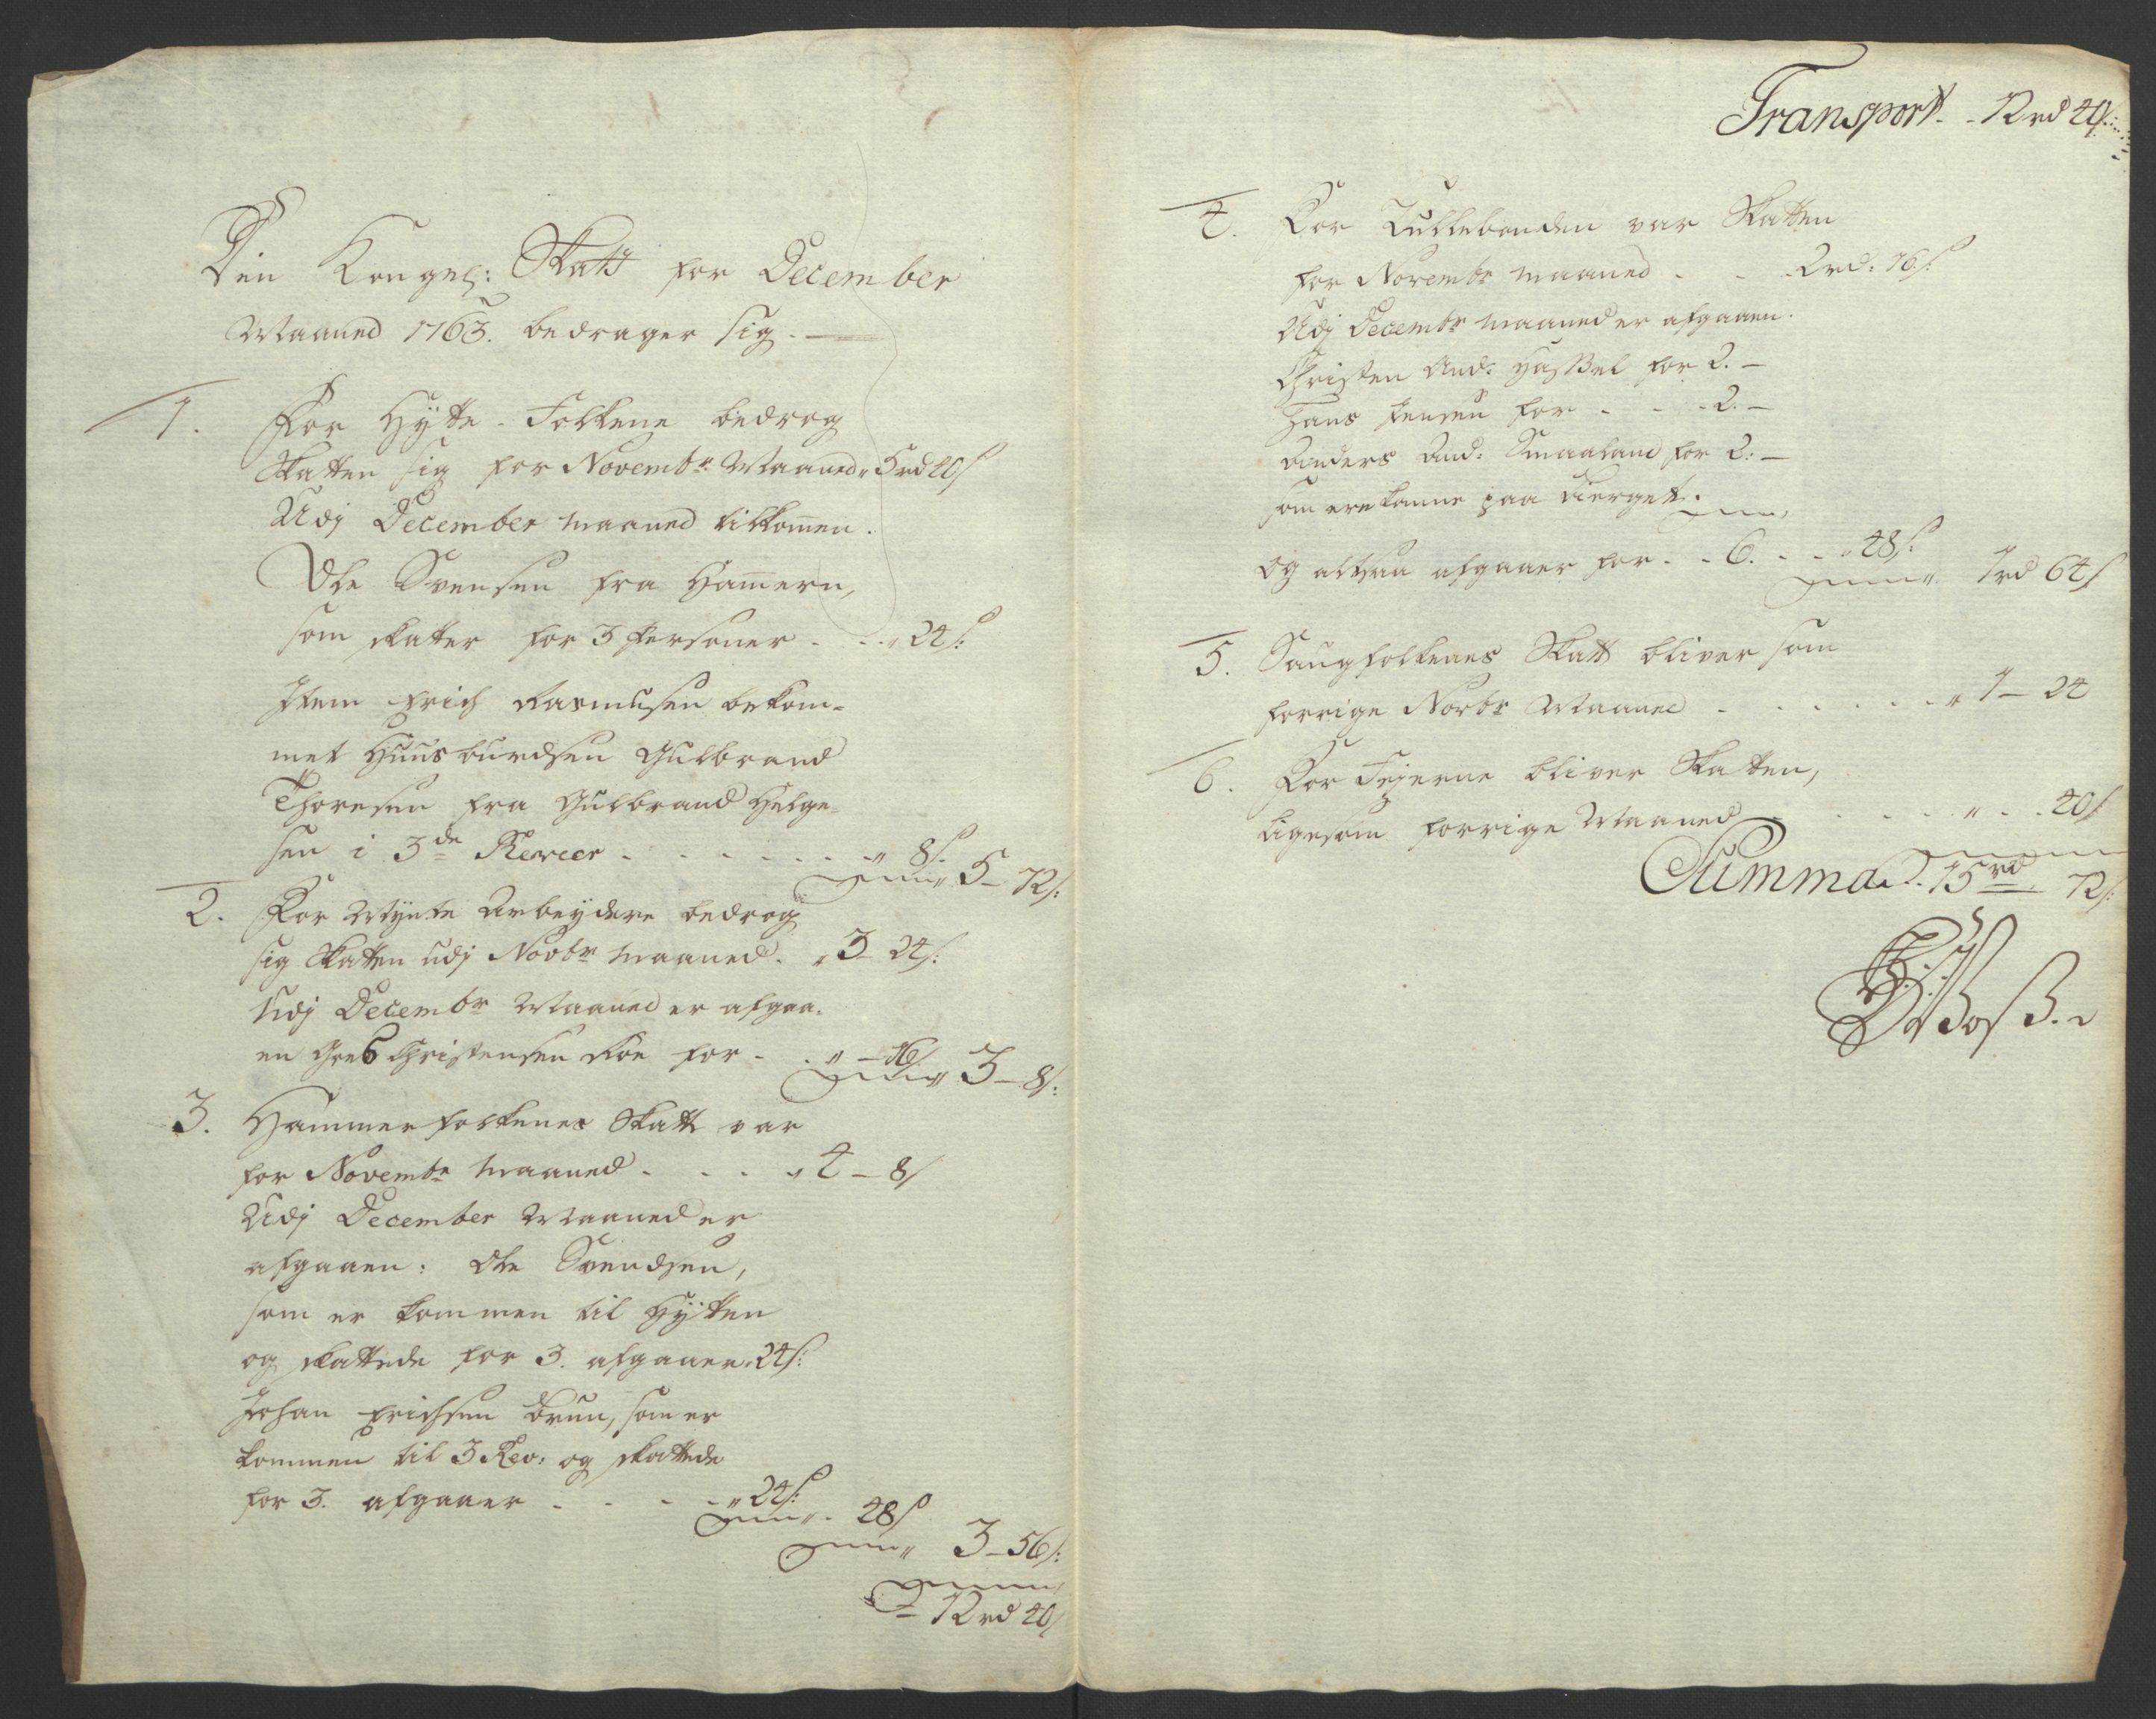 Den Kongel: Skatt for December
Maaned 1763. bedrager sig.
1. For Hytte-Folkene bedrog
Skatten sig for Novembr Maaned " 5 rd 40 s
Udj December maaned tilkommen.
Ole Svensen fra Hammern,
som skatter for 3 Personer - - " 24 s:
Item Erich Rasmusen bekom-
met Huusbundsen Gulbrand
Thoresen fra Gulbrand Helge-
sen i 3de Reveer - - - - - - " 8 s.
5 - 72 s:
2. For Mynte Arbeydere bedrog
sig Skatten udj Novbr Maaned. " 3 - 24 s:
Udj Decembr Maaned er afgaa-
en Christensen Roe for - - " - 16 s
3 - 8 s:
3. Hammerfolkenes Skatt var
for Novembr Maaned - - - - " 4 - 8 s
Udj December Maaned er
afgaaen: Ole Svendsen,
som er kommen til Hytten
og skattede for 3. afgaaer " 24 s:
Johan Erichsen Brun, som er
kommen til 3 Rev: og skattede
for 3. afgaaer - - - - " 24 s:
" - 48 s
" 3 - 56 s:
12 rd 40 s
Transport - - 12 rd 40 s:
4. For Kullebonden var Skatten
for Novembr Maaned - - - 2 rd: 16 s:
Udj Decembr Maaned er afgaaen.
Christen And: Hassel for 2. -
Hans Jensen for - - - 2. -
Anders And: Smaaland for 2. -
som ere komne paa Bierget.
og altsaa afgaaer for - - 6. - - " 48 s:
1 rd 64 s
5. Saugfolkenes Skatt bliver som
forrige Novbr Maaned - - - - - - " 1 - 24
6. For Fejerne bliver Skatten,
ligesom forrige Maaned - - - - - " - - 40 s
Summa - 15 rd 72 s: